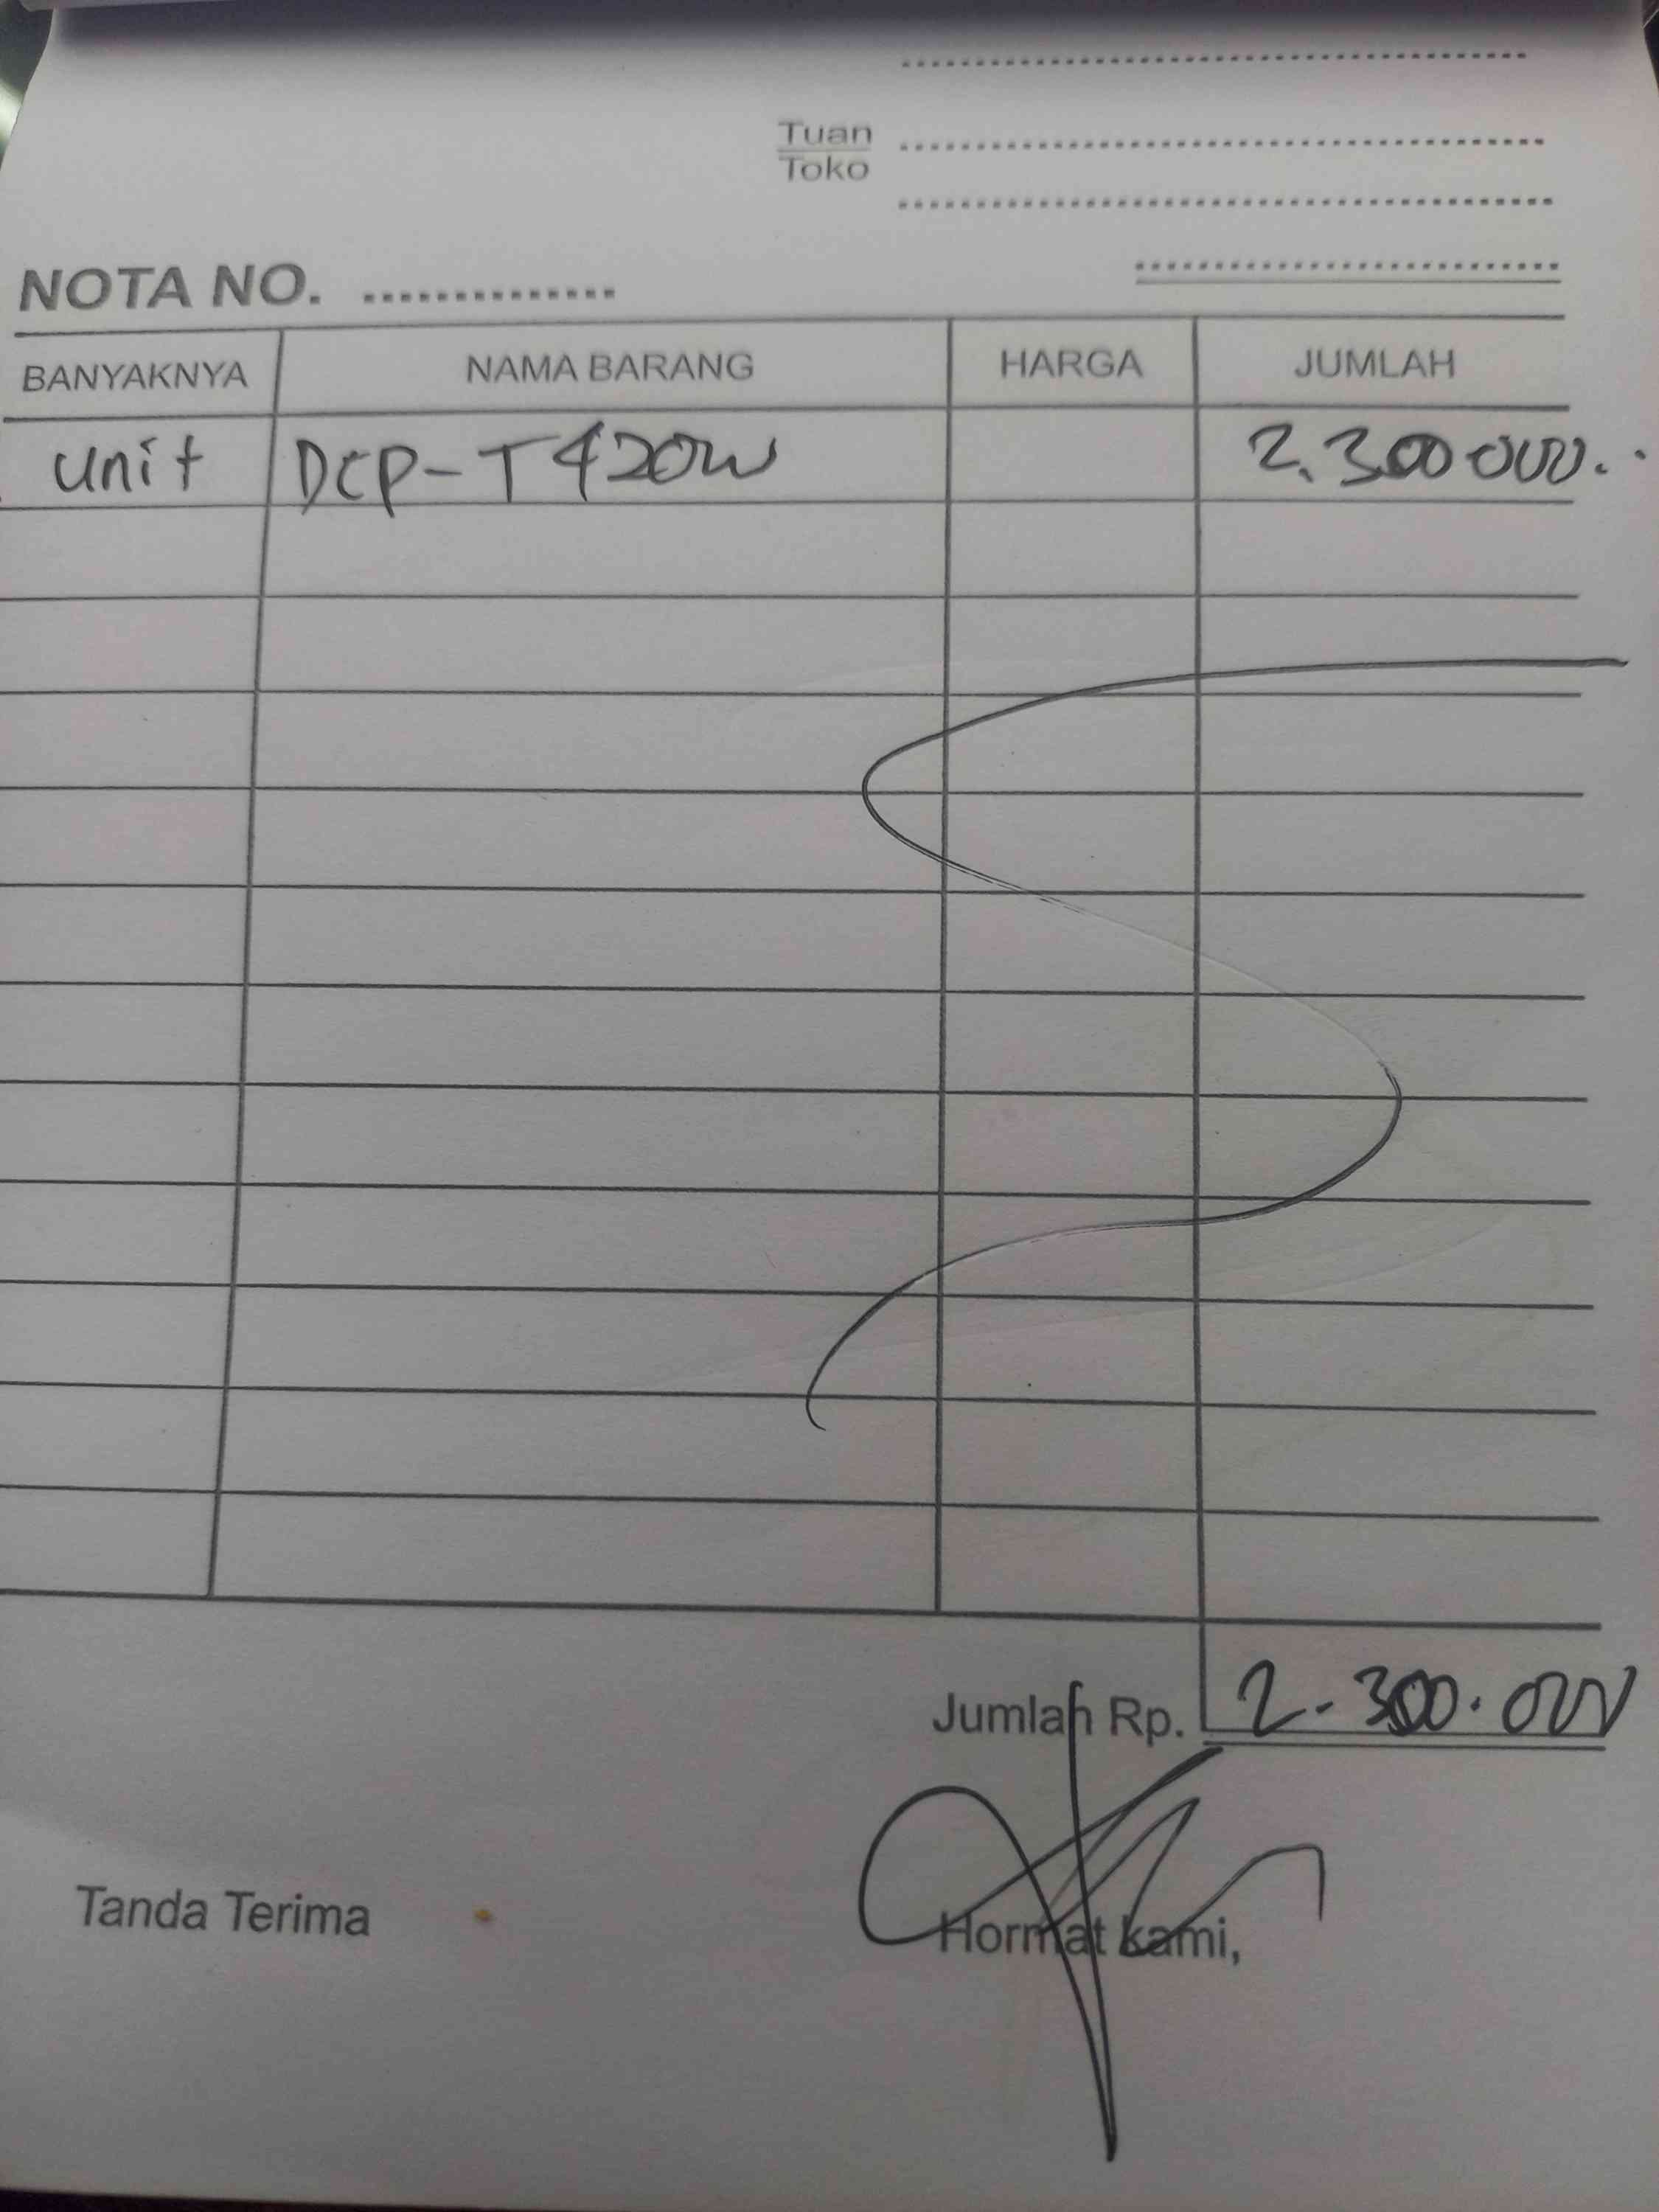 Tuan
Toko
NOTA NO. ..............
BANYAKNYA NAMA BARANG HARGA JUMLAH
unit DCP-T420W 2.300 000..
Jumlah Rp. 2-300.000
Tanda Terima Hormat kami,